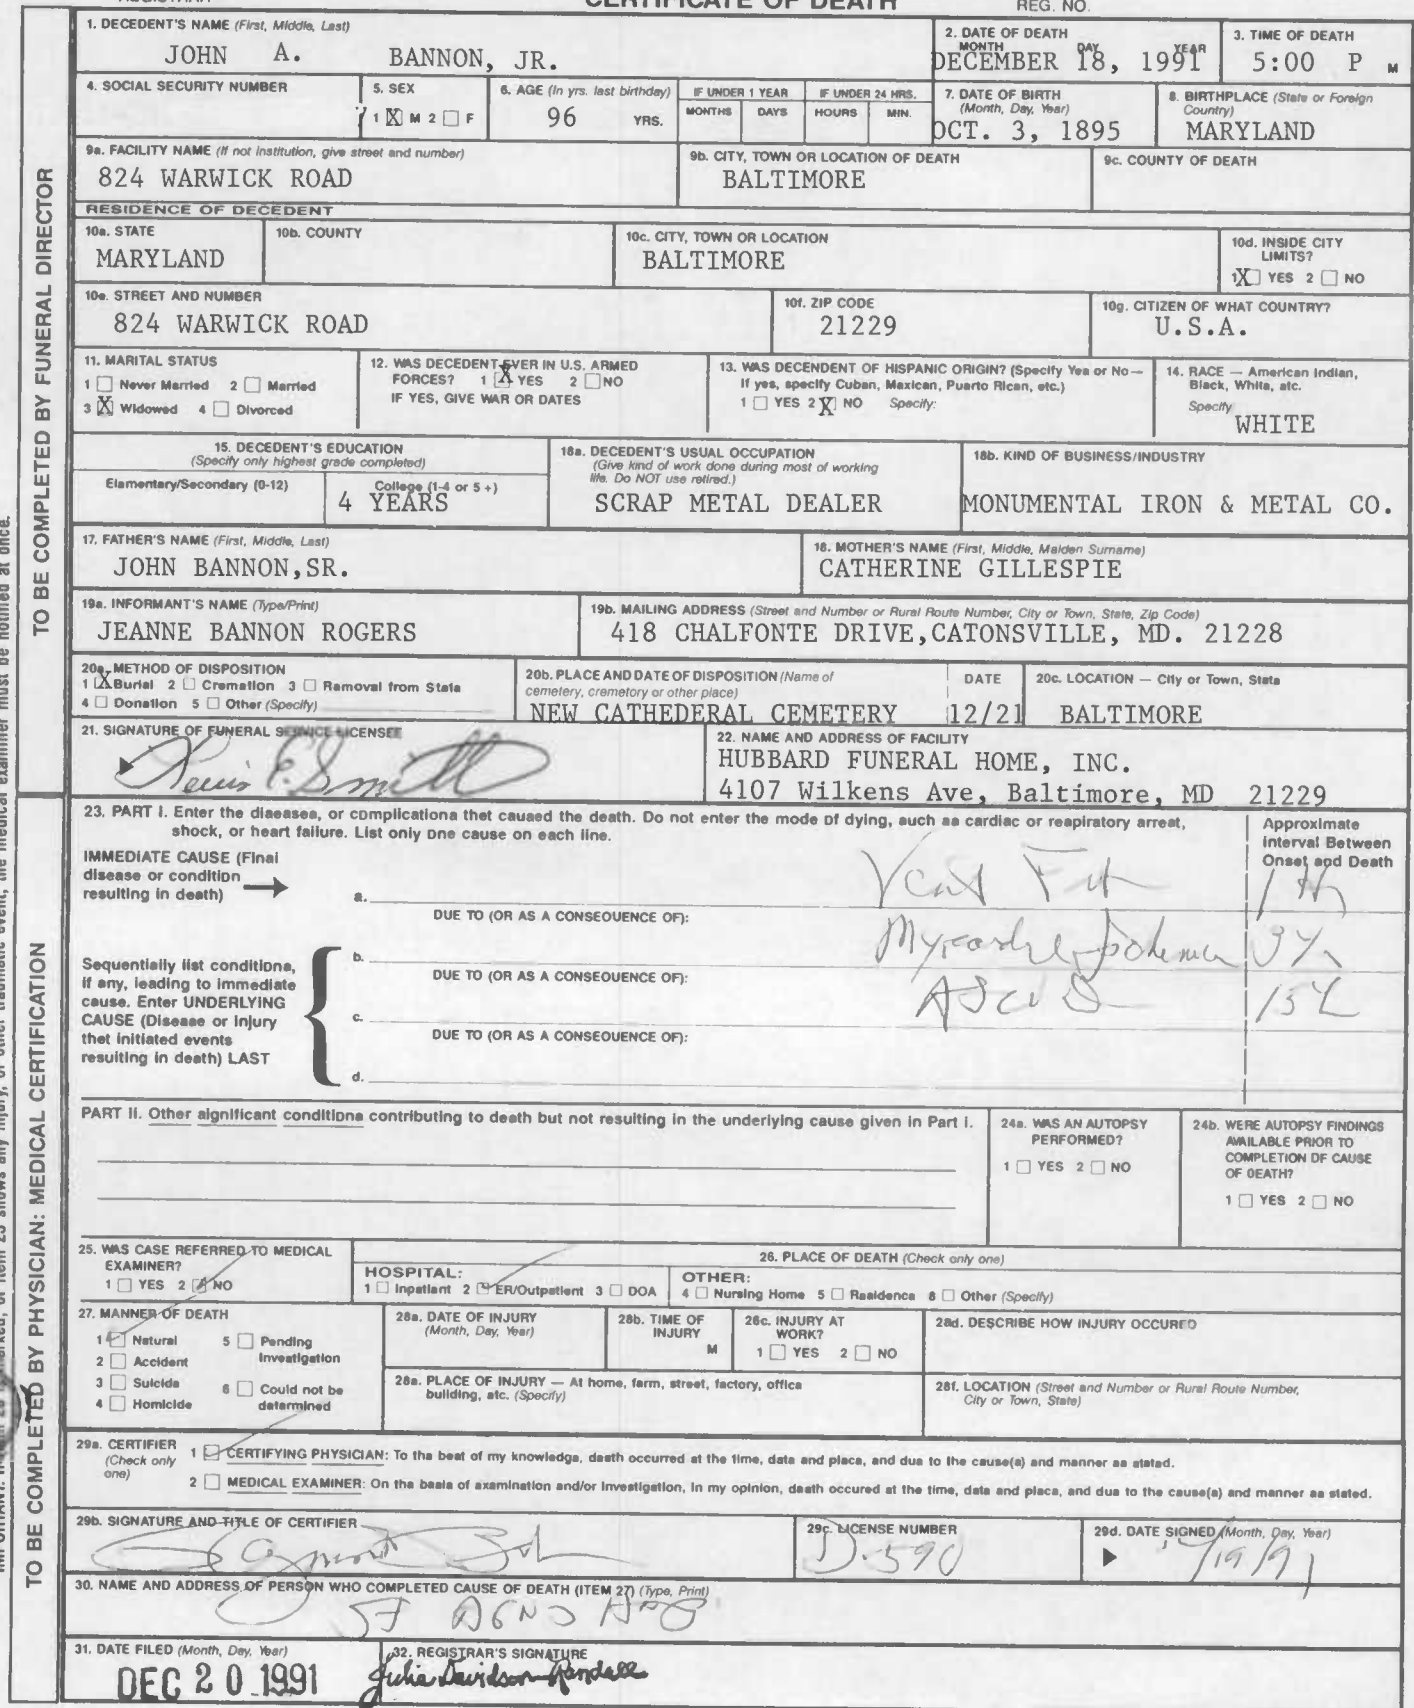 CERTIFICATE OF DEATH
REG. NO.
1. DECEDENT'S NAME (First, Middle, Last)
JOHN A. BANNON, JR.
2. DATE OF DEATH
MONTH DAY YEAR
DECEMBER 18, 1991
3. TIME OF DEATH
5:00 P M
4. SOCIAL SECURITY NUMBER
5. SEX
1 X M 2 F
6. AGE (In yrs. last birthday)
96 YRS.
IF UNDER 1 YEAR
MONTHS DAYS
IF UNDER 24 HRS.
HOURS MIN.
7. DATE OF BIRTH
(Month, Day, Year)
OCT. 3, 1895
8. BIRTHPLACE (State or Foreign
Country)
MARYLAND
9a. FACILITY NAME (If not institution, give street and number)
824 WARWICK ROAD
9b. CITY, TOWN OR LOCATION OF DEATH
BALTIMORE
9c. COUNTY OF DEATH
RESIDENCE OF DECEDENT
10a. STATE
MARYLAND
10b. COUNTY
10c. CITY, TOWN OR LOCATION
BALTIMORE
10d. INSIDE CITY
LIMITS?
1 X YES 2 NO
10e. STREET AND NUMBER
824 WARWICK ROAD
10f. ZIP CODE
21229
10g. CITIZEN OF WHAT COUNTRY?
U.S.A.
11. MARITAL STATUS
1 Never Married 2 Married
3 X Widowed 4 Divorced
12. WAS DECEDENT EVER IN U.S. ARMED
FORCES? 1 X YES 2 NO
IF YES, GIVE WAR OR DATES
13. WAS DECENDENT OF HISPANIC ORIGIN? (Specify Yes or No—
If yes, specify Cuban, Mexican, Puerto Rican, etc.)
1 YES 2 X NO Specify:
14. RACE — American Indian,
Black, White, etc.
Specify
WHITE
15. DECEDENT'S EDUCATION
(Specify only highest grade completed)
Elementary/Secondary (0-12)
College (1-4 or 5+)
4 YEARS
16a. DECEDENT'S USUAL OCCUPATION
(Give kind of work done during most of working
life. Do NOT use retired.)
SCRAP METAL DEALER
16b. KIND OF BUSINESS/INDUSTRY
MONUMENTAL IRON & METAL CO.
17. FATHER'S NAME (First, Middle, Last)
JOHN BANNON,SR.
18. MOTHER'S NAME (First, Middle, Maiden Surname)
CATHERINE GILLESPIE
19a. INFORMANT'S NAME (Type/Print)
JEANNE BANNON ROGERS
19b. MAILING ADDRESS (Street and Number or Rural Route Number, City or Town, State, Zip Code)
418 CHALFONTE DRIVE,CATONSVILLE, MD. 21228
20a. METHOD OF DISPOSITION
1 X Burial 2 Cremation 3 Removal from State
4 Donation 5 Other (Specify)
20b. PLACE AND DATE OF DISPOSITION (Name of
cemetery, crematory or other place)
NEW CATHEDERAL CEMETERY
DATE
12/21
20c. LOCATION — City or Town, State
BALTIMORE
21. SIGNATURE OF FUNERAL SERVICE LICENSEE
Kevin E. Smith
22. NAME AND ADDRESS OF FACILITY
HUBBARD FUNERAL HOME, INC.
4107 Wilkens Ave, Baltimore, MD 21229
TO BE COMPLETED BY FUNERAL DIRECTOR
23. PART I. Enter the diseases, or complications that caused the death. Do not enter the mode of dying, such as cardiac or respiratory arrest,
shock, or heart failure. List only one cause on each line.
Approximate
Interval Between
Onset and Death
IMMEDIATE CAUSE (Final
disease or condition
resulting in death)
a.
DUE TO (OR AS A CONSEQUENCE OF):
Sequentially list conditions,
if any, leading to immediate
cause. Enter UNDERLYING
CAUSE (Disease or injury
that initiated events
resulting in death) LAST
b.
DUE TO (OR AS A CONSEQUENCE OF):
c. ASCVD
DUE TO (OR AS A CONSEQUENCE OF):
d.
PART II. Other significant conditions contributing to death but not resulting in the underlying cause given in Part I.
24a. WAS AN AUTOPSY
PERFORMED?
1 YES 2 NO
24b. WERE AUTOPSY FINDINGS
AVAILABLE PRIOR TO
COMPLETION OF CAUSE
OF DEATH?
1 YES 2 NO
25. WAS CASE REFERRED TO MEDICAL
EXAMINER?
1 YES 2 NO
26. PLACE OF DEATH (Check only one)
HOSPITAL:
1 Inpatient 2 ER/Outpatient 3 DOA
OTHER:
4 Nursing Home 5 Residence 6 Other (Specify)
27. MANNER OF DEATH
1 Natural 5 Pending
Investigation
2 Accident
3 Suicide 6 Could not be
determined
4 Homicide
28a. DATE OF INJURY
(Month, Day, Year)
28b. TIME OF
INJURY
M
28c. INJURY AT
WORK?
1 YES 2 NO
28d. DESCRIBE HOW INJURY OCCURED
28e. PLACE OF INJURY — At home, farm, street, factory, office
building, etc. (Specify)
28f. LOCATION (Street and Number or Rural Route Number,
City or Town, State)
29a. CERTIFIER
(Check only
one)
1 CERTIFYING PHYSICIAN: To the best of my knowledge, death occurred at the time, date and place, and due to the cause(s) and manner as stated.
2 MEDICAL EXAMINER: On the basis of examination and/or investigation, in my opinion, death occured at the time, date and place, and due to the cause(s) and manner as stated.
29b. SIGNATURE AND TITLE OF CERTIFIER
29c. LICENSE NUMBER
D-590
29d. DATE SIGNED (Month, Day, Year)
30. NAME AND ADDRESS OF PERSON WHO COMPLETED CAUSE OF DEATH (ITEM 27) (Type, Print)
31. DATE FILED (Month, Day, Year)
DEC 20 1991
32. REGISTRAR'S SIGNATURE
Julia Davidson-Randall
TO BE COMPLETED BY PHYSICIAN: MEDICAL CERTIFICATION